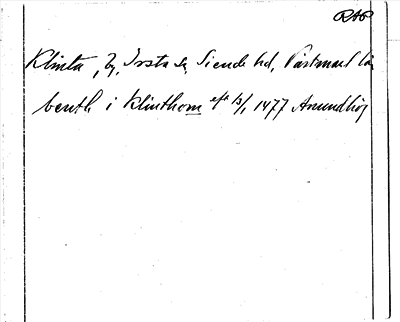 RAP
Klinta, By, Irsta sn, Siende hd, Västmanl län
benth i Klinthom efr 13/1 1477 Anundhög